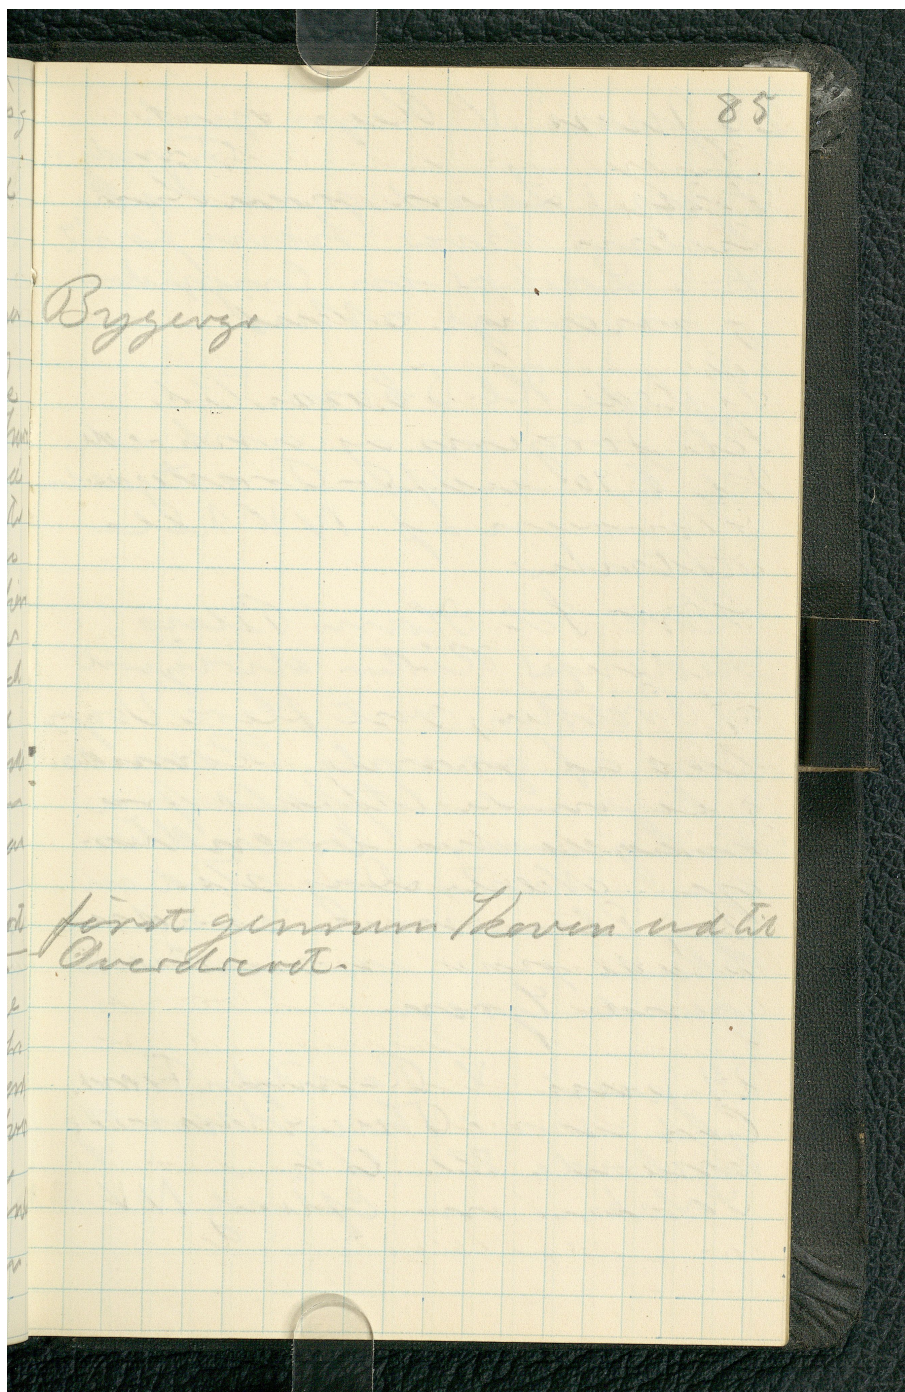 85
Bygevgr
først gennem Skoven ud til
Overdrevet.